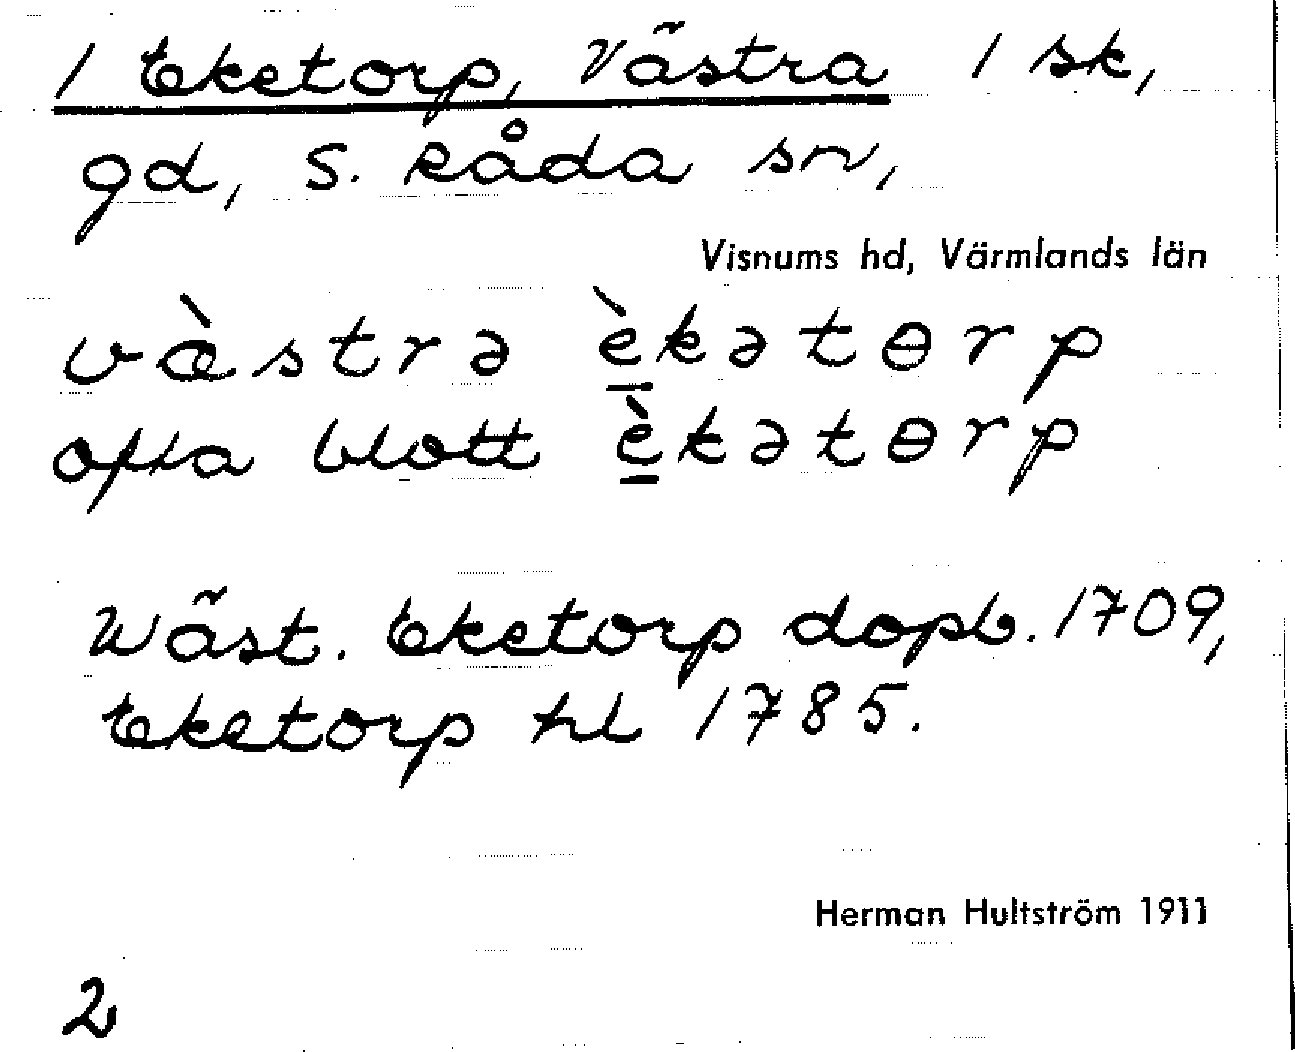 1 Eketorp, Västra 1 sk,
gd, S. Råda sn,
Visnums hd, Värmlands län
væ̀strə è̱kətɵrp
ofta blott è̱kətɵrp
Wäst. Eketorp dopb. 1709,
Eketorp hl 1785.
Herman Hultström 1911
2